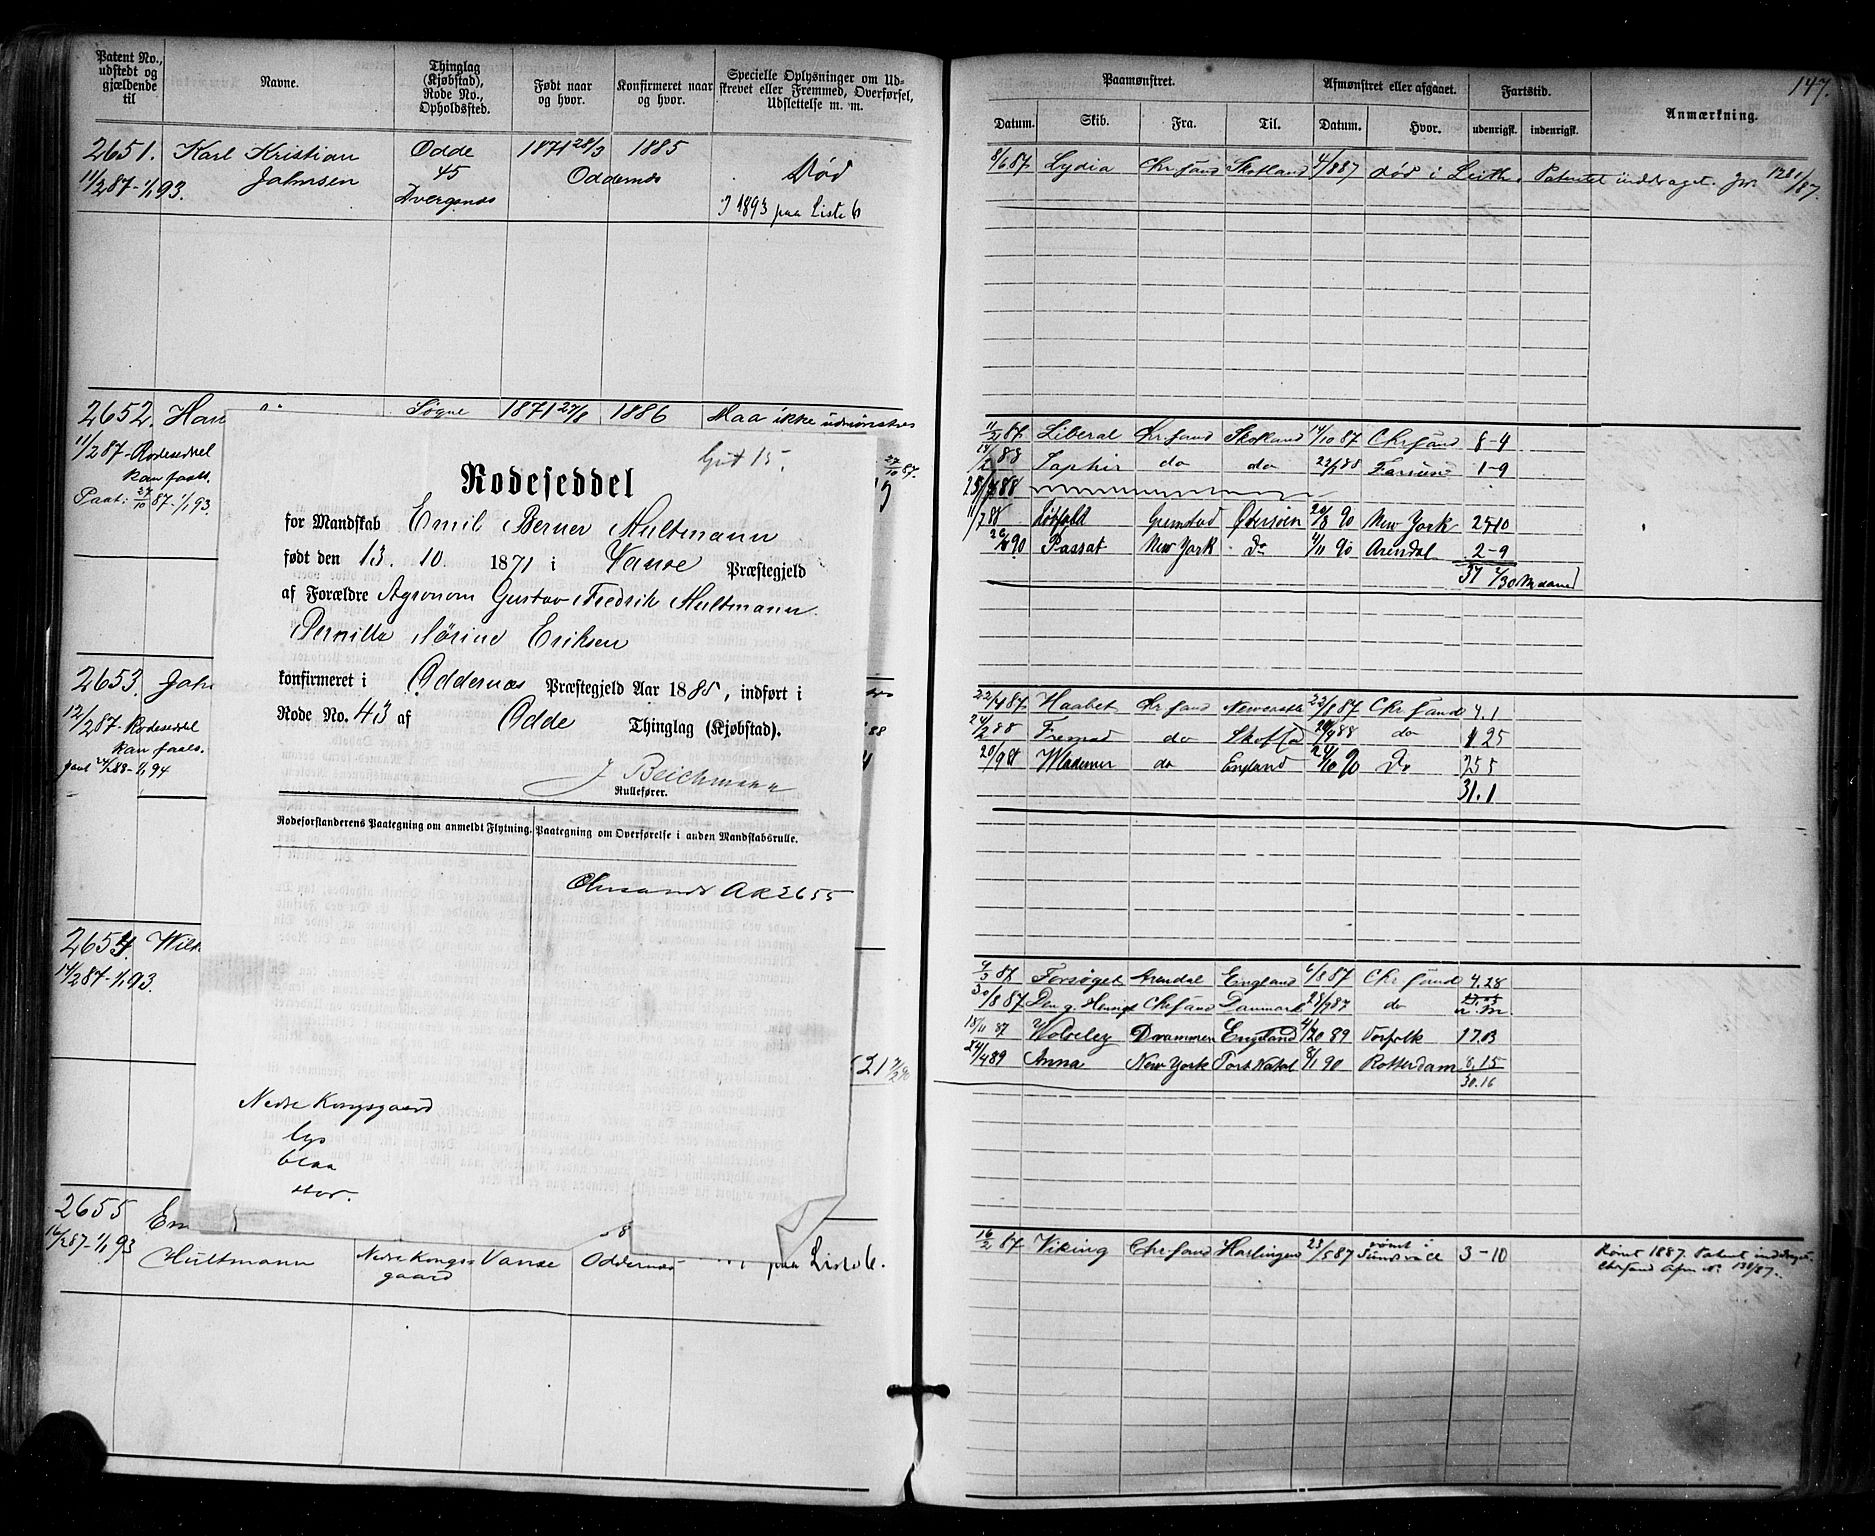 147.
Patent No., udstedt og gjældende til
Navne.
Thinglag (Kjøbstad), Rode No., Opholdssted.
Født naar og hvor.
Konfirmeret naar og hvor.
Specielle Oplysninger om Udskrevet eller Fremmed, Overførsel, Udslettelse m. m.
Paamønstret.
Afmønstret eller afgaaet.
Fartstid.
Anmærkning.
Datum. Skib. Fra. Til. Datum. Hvor. udenrigsk. indenrigsk.
2651. Karl Kristian Odde 1871 28/3 1885
11/2 87-1/1 93. Jahnsen 45 Oddernes Død
Dvergsnes I 1893 paa Liste 6
8/6 87 Lydia Chrsand Skotland 4/8 87 død i Leith. Patentet inddraget. Jr.
2652. Han Søgne 1871 27/8 1886 Maa ikke udmønstres
11/2 87- Rodeseddel
kan faaes.
Paat: 27/10 87-1/1 93.
27/10 87.
11/2 87 Liberal Chrsand Skotland 14/10 87 Chrsand 8-4
14/2 88 Saphir do do 23/3 88 Farsund 1-9
11/7 88 Grimstad Østersøen 20/8 90 New York 25.10
26/8 90 Passat New York Do 4/11 90 Arendal 2-9
37 2/30 Maaned
2653. Jah
12/2 87- Rodeseddel
kan faaes.
paat 24/2 88-1/1 94
22/4 87 Haabet Chrsand Newcastle 22/8 87 Chrsand 4.1
24/2 88 Fremad do Skotld 88 do 1 25
20/9 88 Wladimir do England 24/10 90 Do 25 5
31.1
2654. Wilh
14/2 87-1/1 93.
4/3 87 Forsøget Arendal England 6/8 87 Chrsand 4.28
30/8 87 Den g. Hensigt Chrsand Danmark 28/9 87 do
15/11 87 Wolseley Drammen England 4/20 89 Norfolk 17.03
24/4 89 Anna New York Port Natal 8/1 90 Rotterdam 8.15
30.16
2655 Em
16/2 87-1/1 93
Hultmann Nedre Kongs= Vanse Oddernes paa Liste 6.
gaard
16/2 87 Viking Chrsand Harlingen 23/5 87 rømt i Sundsvall 3-10
Rømt 1887. Patent inddraget.
Chrsand Afm. No. 138/87.
Git 15.
Rodeseddel
for Mandskab Emil Berner Hultmann
født den 13. 10. 1871 i Vanse Præstegjeld
af Forældre Agronom Gustav Fredrik Hultmann
Pernille Sørine Eriksen
konfirmeret i Oddernes Præstegjeld Aar 1885, indført i
Rode No. 43 af Odde Thinglag (Kjøbstad).
J Beichmann
Rullefører.
Rodeforstanderens Paategning om anmeldt Flytning. Paategning om Overførelse i anden Mandskabsrulle.
Chrsands A R 2655
Nedre Kongsgaard
lys
blaa
stor.